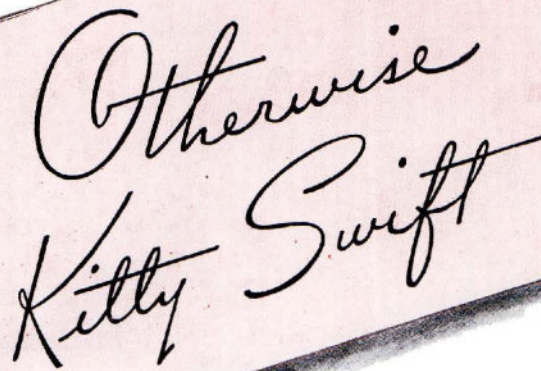 Otherwise
Kitty Swift